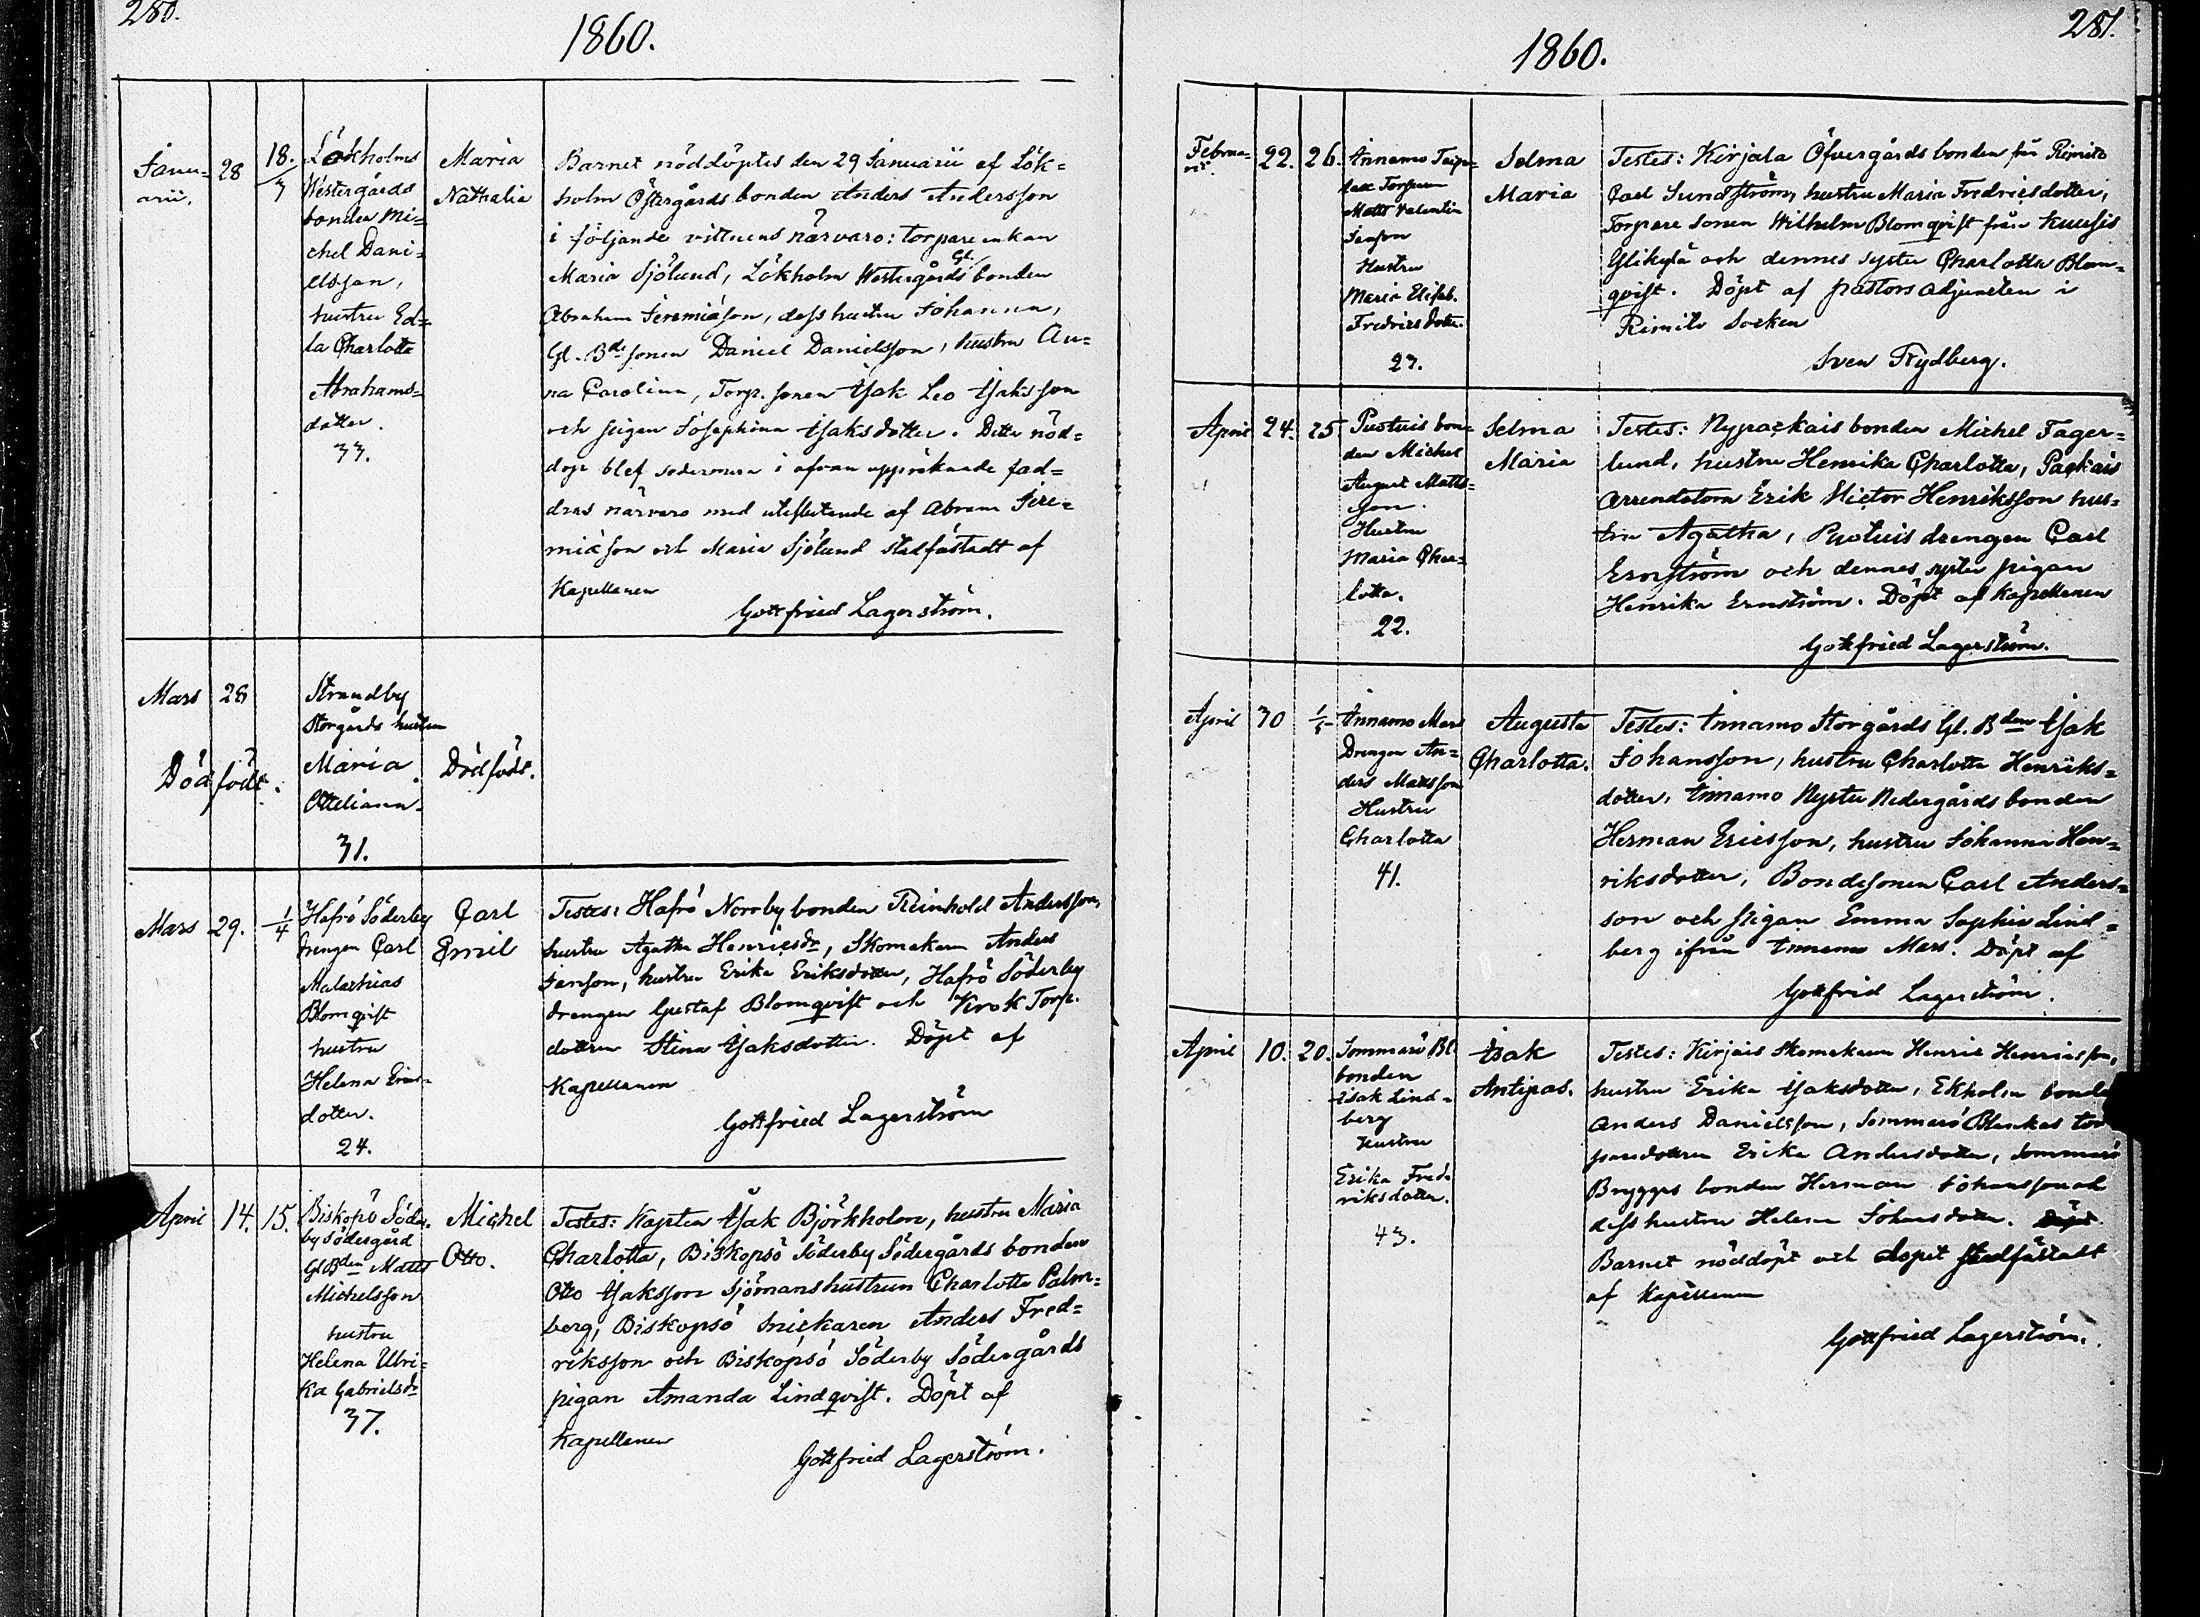 280.
1860.
Janu-
arii.
28
18.
3
Lökholms
Westergårds
bonden Mi-
chel Dani-
elsson,
hustru Ed-
la Charlotta
Abrahams-
dotter.
33.
Maria
Nathalia
Barnet nöddöptes den 29 Januarii af Lök-
holm Östergårds bonden Anders Andersson
i följande vittnens närvaro: torpare enkan
Maria Sjölund, Lökholm Westergårds Gl. bonden
Abraham Jeremiasson, dess hustru Johanna,
Gl. Bde sonen Daniel Danielsson, hustru An-
na Carolina, Torp. sonen Isak Leo Isaksson
och pigan Josephina Isaksdotter. Detta nöd-
dop blef sedermera i ofvan uppräknade fad-
dras närvaro med uteslutande af Abram Jere-
miasson och Maria Sjölund stadfästadt af
Kapellanen
Gottfried Lagerström.
Mars
28
Dödfödt.
Strandby
Storgårds hustru
Maria
Otteliana.
31.
Dödfödt.
Mars
29.
1
4
Hafrö Söderby
drengen Carl
Malachias
Blomqvist
hustru
Helena Erics-
dotter.
24.
Carl
Emil
Testes: Hafrö Norrby bonden Reinhold Andersson,
hustru Agatha Henricsdr, Skomakaren Anders
Janson, hustru Erika Eriksdotter, Hafrö Söderby
drengen Gustaf Blomqvist och Krok Torp.
dottren Stina Isaksdotter. Döpt af
Kapellanen
Gottfried Lagerström
April
14.
15.
Biskopsö Söder-
by Södergård
Gl Bden Matts
Michelsson
hustru
Helena Ulri-
ka Gabrielsdr
37.
Michel
Otto.
Testes: Kapten Isak Björkholm, hustru Maria
Charlotta, Biskopsö Söderby Södergårds bonden
Otto Isaksson Sjömanshustrun Charlotta Palm-
berg, Biskopsö snickaren Anders Fred-
riksson och Biskopsö Söderby Södergårds
pigan Amanda Lindqvist. Döpt af
Kapellanen
Gottfried Lagerström.
281.
1860.
Februa-
rii.
22.
26.
Innamo
Torparen
Matts Valentin
Janson
Hustru
Maria Elisab.
Fredricsdotter.
23.
Selma
Maria
Testes: Kirjala Öfvergårds bonden från Rimito
Carl Sundström, hustru Maria Fredricsdotter,
Torpare sonen Wilhelm Blomqvist från Kuusis
Ylikylä och dennes syster Charlotta Blom-
qvist. Döpt af pastors adjuncten i
Rimito Socken
Sven Rydberg.
April
24.
25
Puotuis bon-
den Michel
August Matts-
son.
Hustru
Maria Char-
lotta.
22.
Selma
Maria
Testes: Nypackais bonden Michel Fager-
lund, hustru Henrika Charlotta, Packais
Arrendatorn Erik Victor Henriksson hus-
tru Agatha, Puotuis drengen Carl
Ernström och dennes syster pigan
Henrika Ernström. Döpt af Kapellanen
Gottfried Lagerström.
April
30
1
5
Innamo Mars
Drengen An-
ders Marsson
Hustru
Charlotta
41.
Augusta
Charlotta.
Testes: Innamo Storgårds Gl. Bden Isak
Johansson, hustru Charlotta Henriks-
dotter, Innamo Nystu Nedergårds bonden
Herman Ericsson, hustru Johanna Hen-
riksdotter, Bondesonen Carl Anders-
son och pigan Emma Sophia Lind-
berg ifrån Innamo Mars. Döpt af
Gottfrid Lagerström.
April
10.
20.
Sommarö Bl.
bonden
Isak Lind-
berg
Hustru
Erika Fred-
riksdotter.
43.
Isak
Antipas.
Testes: Kirjais Skomakaren Henric Henricsson,
hustru Erika Isaksdotter, Ekholm bonde
Anders Danielsson, Sommarö Blenkas tor
paredottren Erika Andersdotter, Sommarö
Brygges bonden Herman Johansson och
dess hustru Helena Johansdotter. Döpt
Barnet nöddöpt och dopet stadfästadt
af Kapellanen
Gottfried Lagerström.